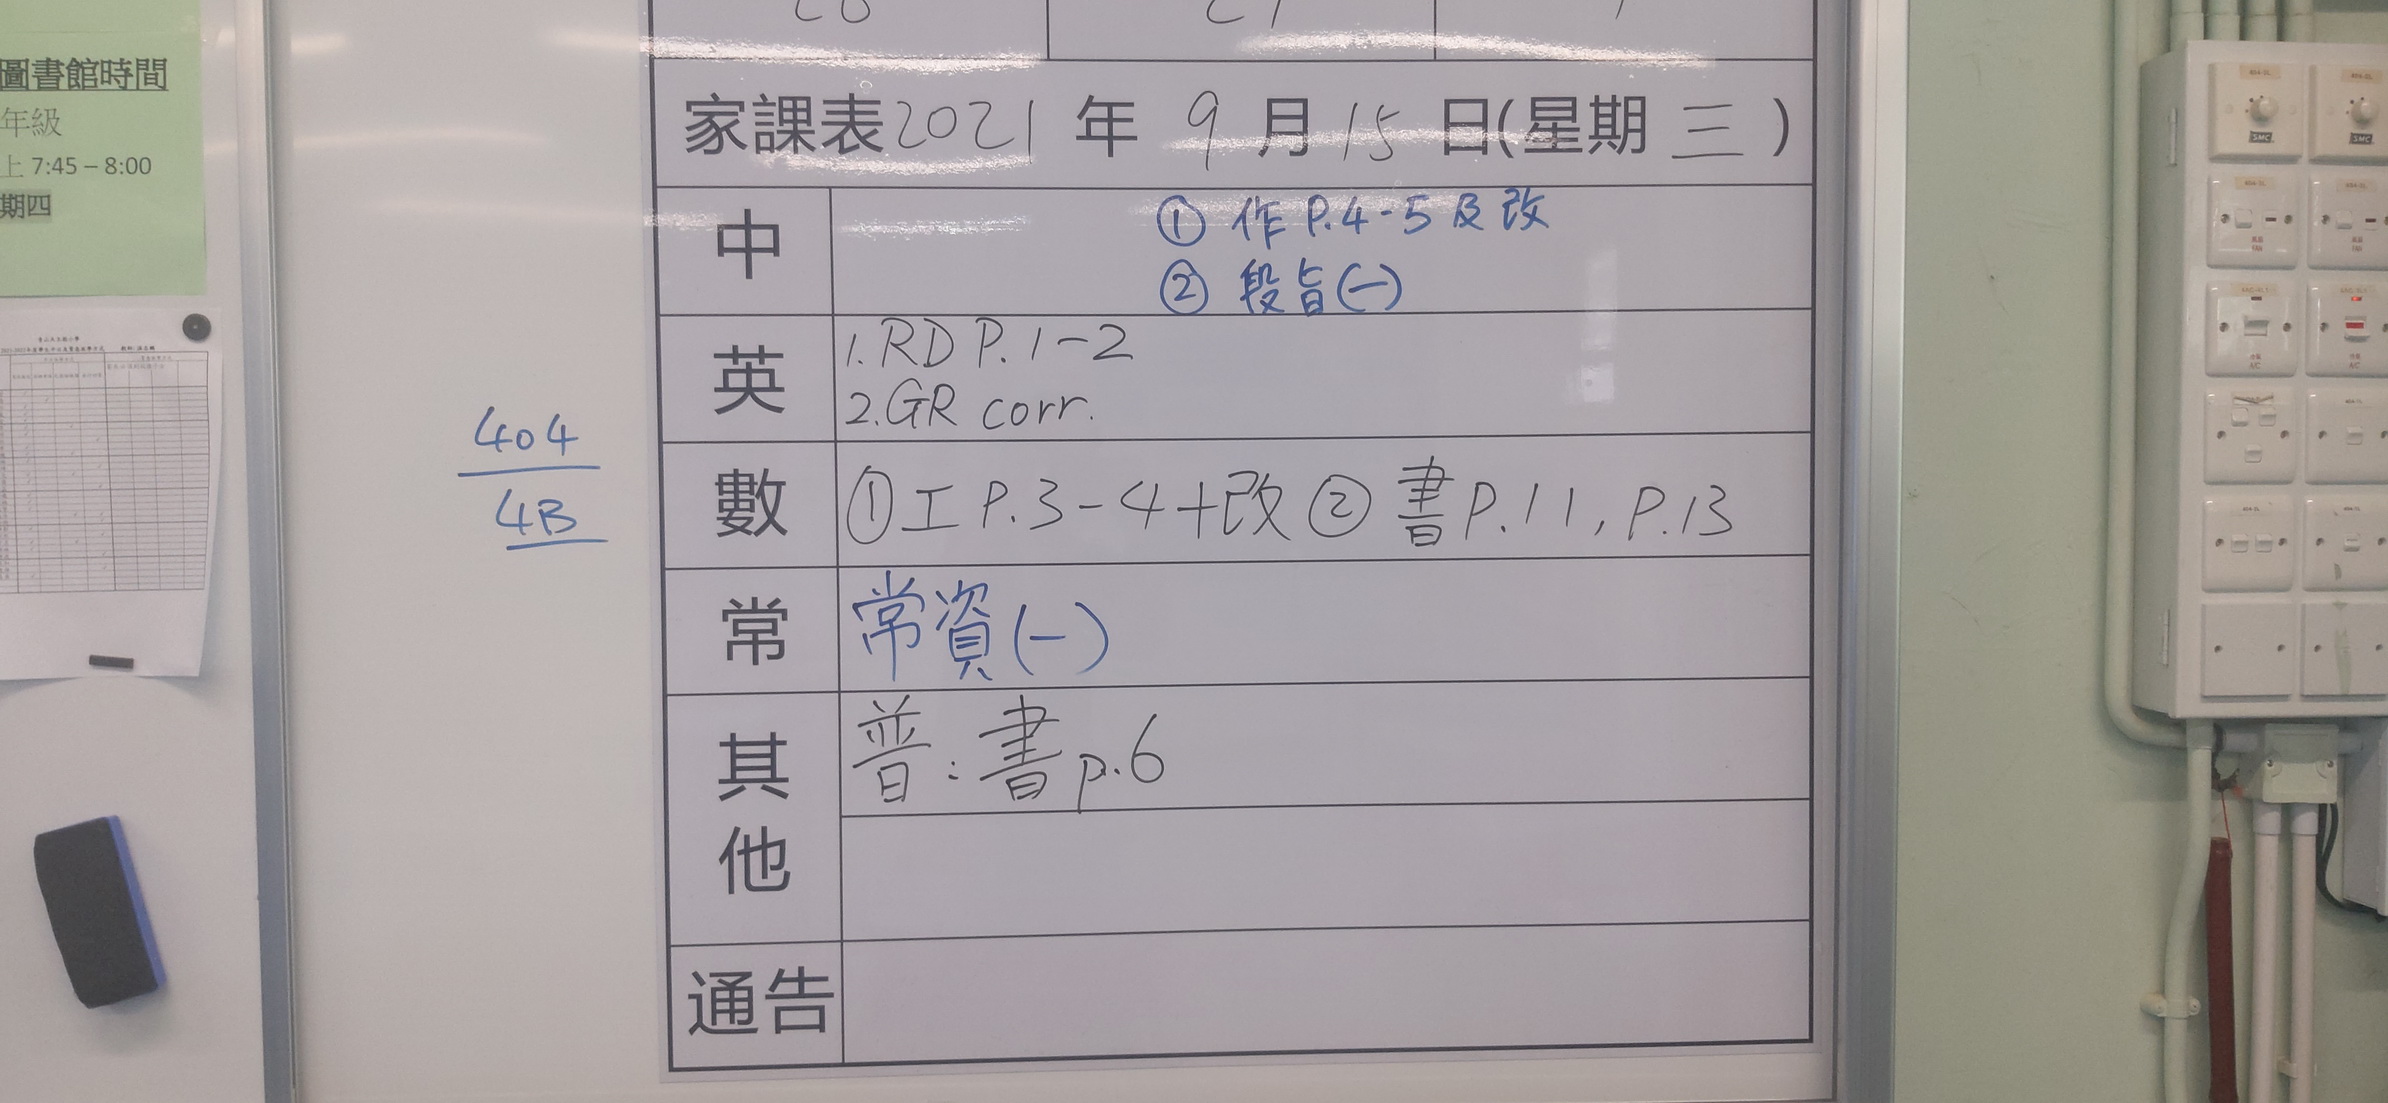 圖書館時間
年級
上 7:45 – 8:00
期四
家課表2021 年 9 月 15 日(星期 三 )
中
① 作 P.4-5 及 改
② 段旨(一)
英
1.RD P.1-2
2.GR corr.
404
4B
數
①工 P.3-4+改 ② 書 P.11, P.13
常
常資(一)
其他
普:書 p.6
通告